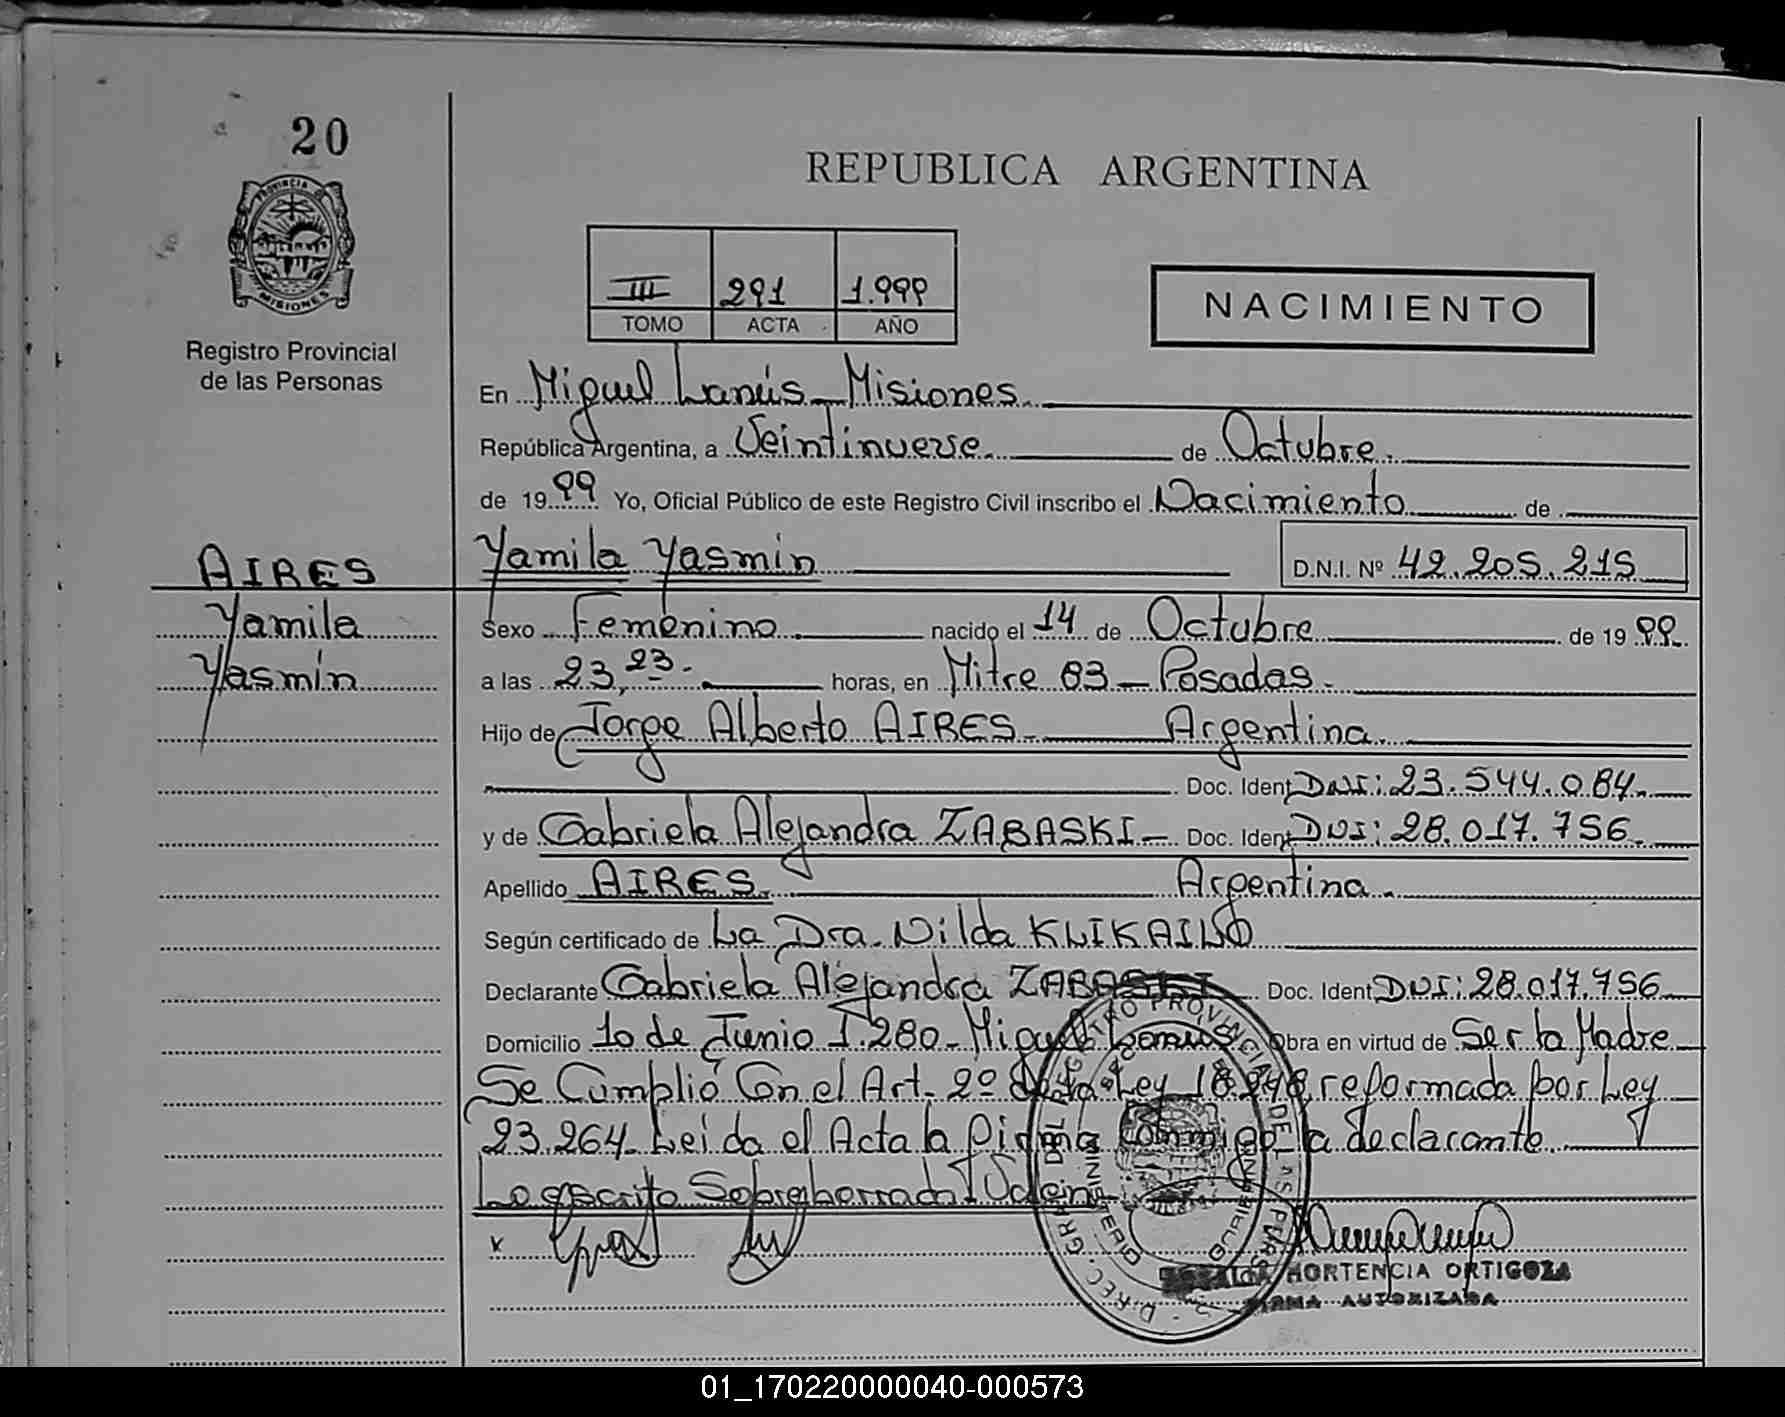 20
REPUBLICA ARGENTINA
PROVINCIA DE
MISIONES
Registro Provincial
de las Personas
III 291 1.999
TOMO ACTA AÑO
NACIMIENTO
En Miguel Lanús - Misiones.
República Argentina, a Veintinueve. de Octubre.
de 1999 Yo, Oficial Público de este Registro Civil inscribo el Nacimiento de
AIRES
Yamila
Yasmín
Yamila Yasmín D.N.I. Nº 42.205.215
Sexo Femenino. nacido el 14 de Octubre de 19 99.
a las 23,23. horas, en Mitre 83 - Posadas.
Hijo de Jorge Alberto AIRES. Argentina.
Doc. Ident DNI: 23.544.084.
y de Gabriela Alejandra ZABASKI - Doc. Ident DNI: 28.017.756.
Apellido AIRES. Argentina.
Según certificado de La Dra. Nilda
Declarante Gabriela Alejandra ZABASKI Doc. Ident DNI: 28.017.756
Domicilio 10 de Junio 1.280 - Miguel Lanús Obra en virtud de Ser la Madre
Se Cumplió Con el Art. 2º de la Ley reformada por Ley
23.264. Leída el Acta la firma conmigo la declarante.
Lo escrito Sobreborrado
x
HORTENCIA ORTIGOZA
FIRMA AUTORIZADA
01_170220000040-000573